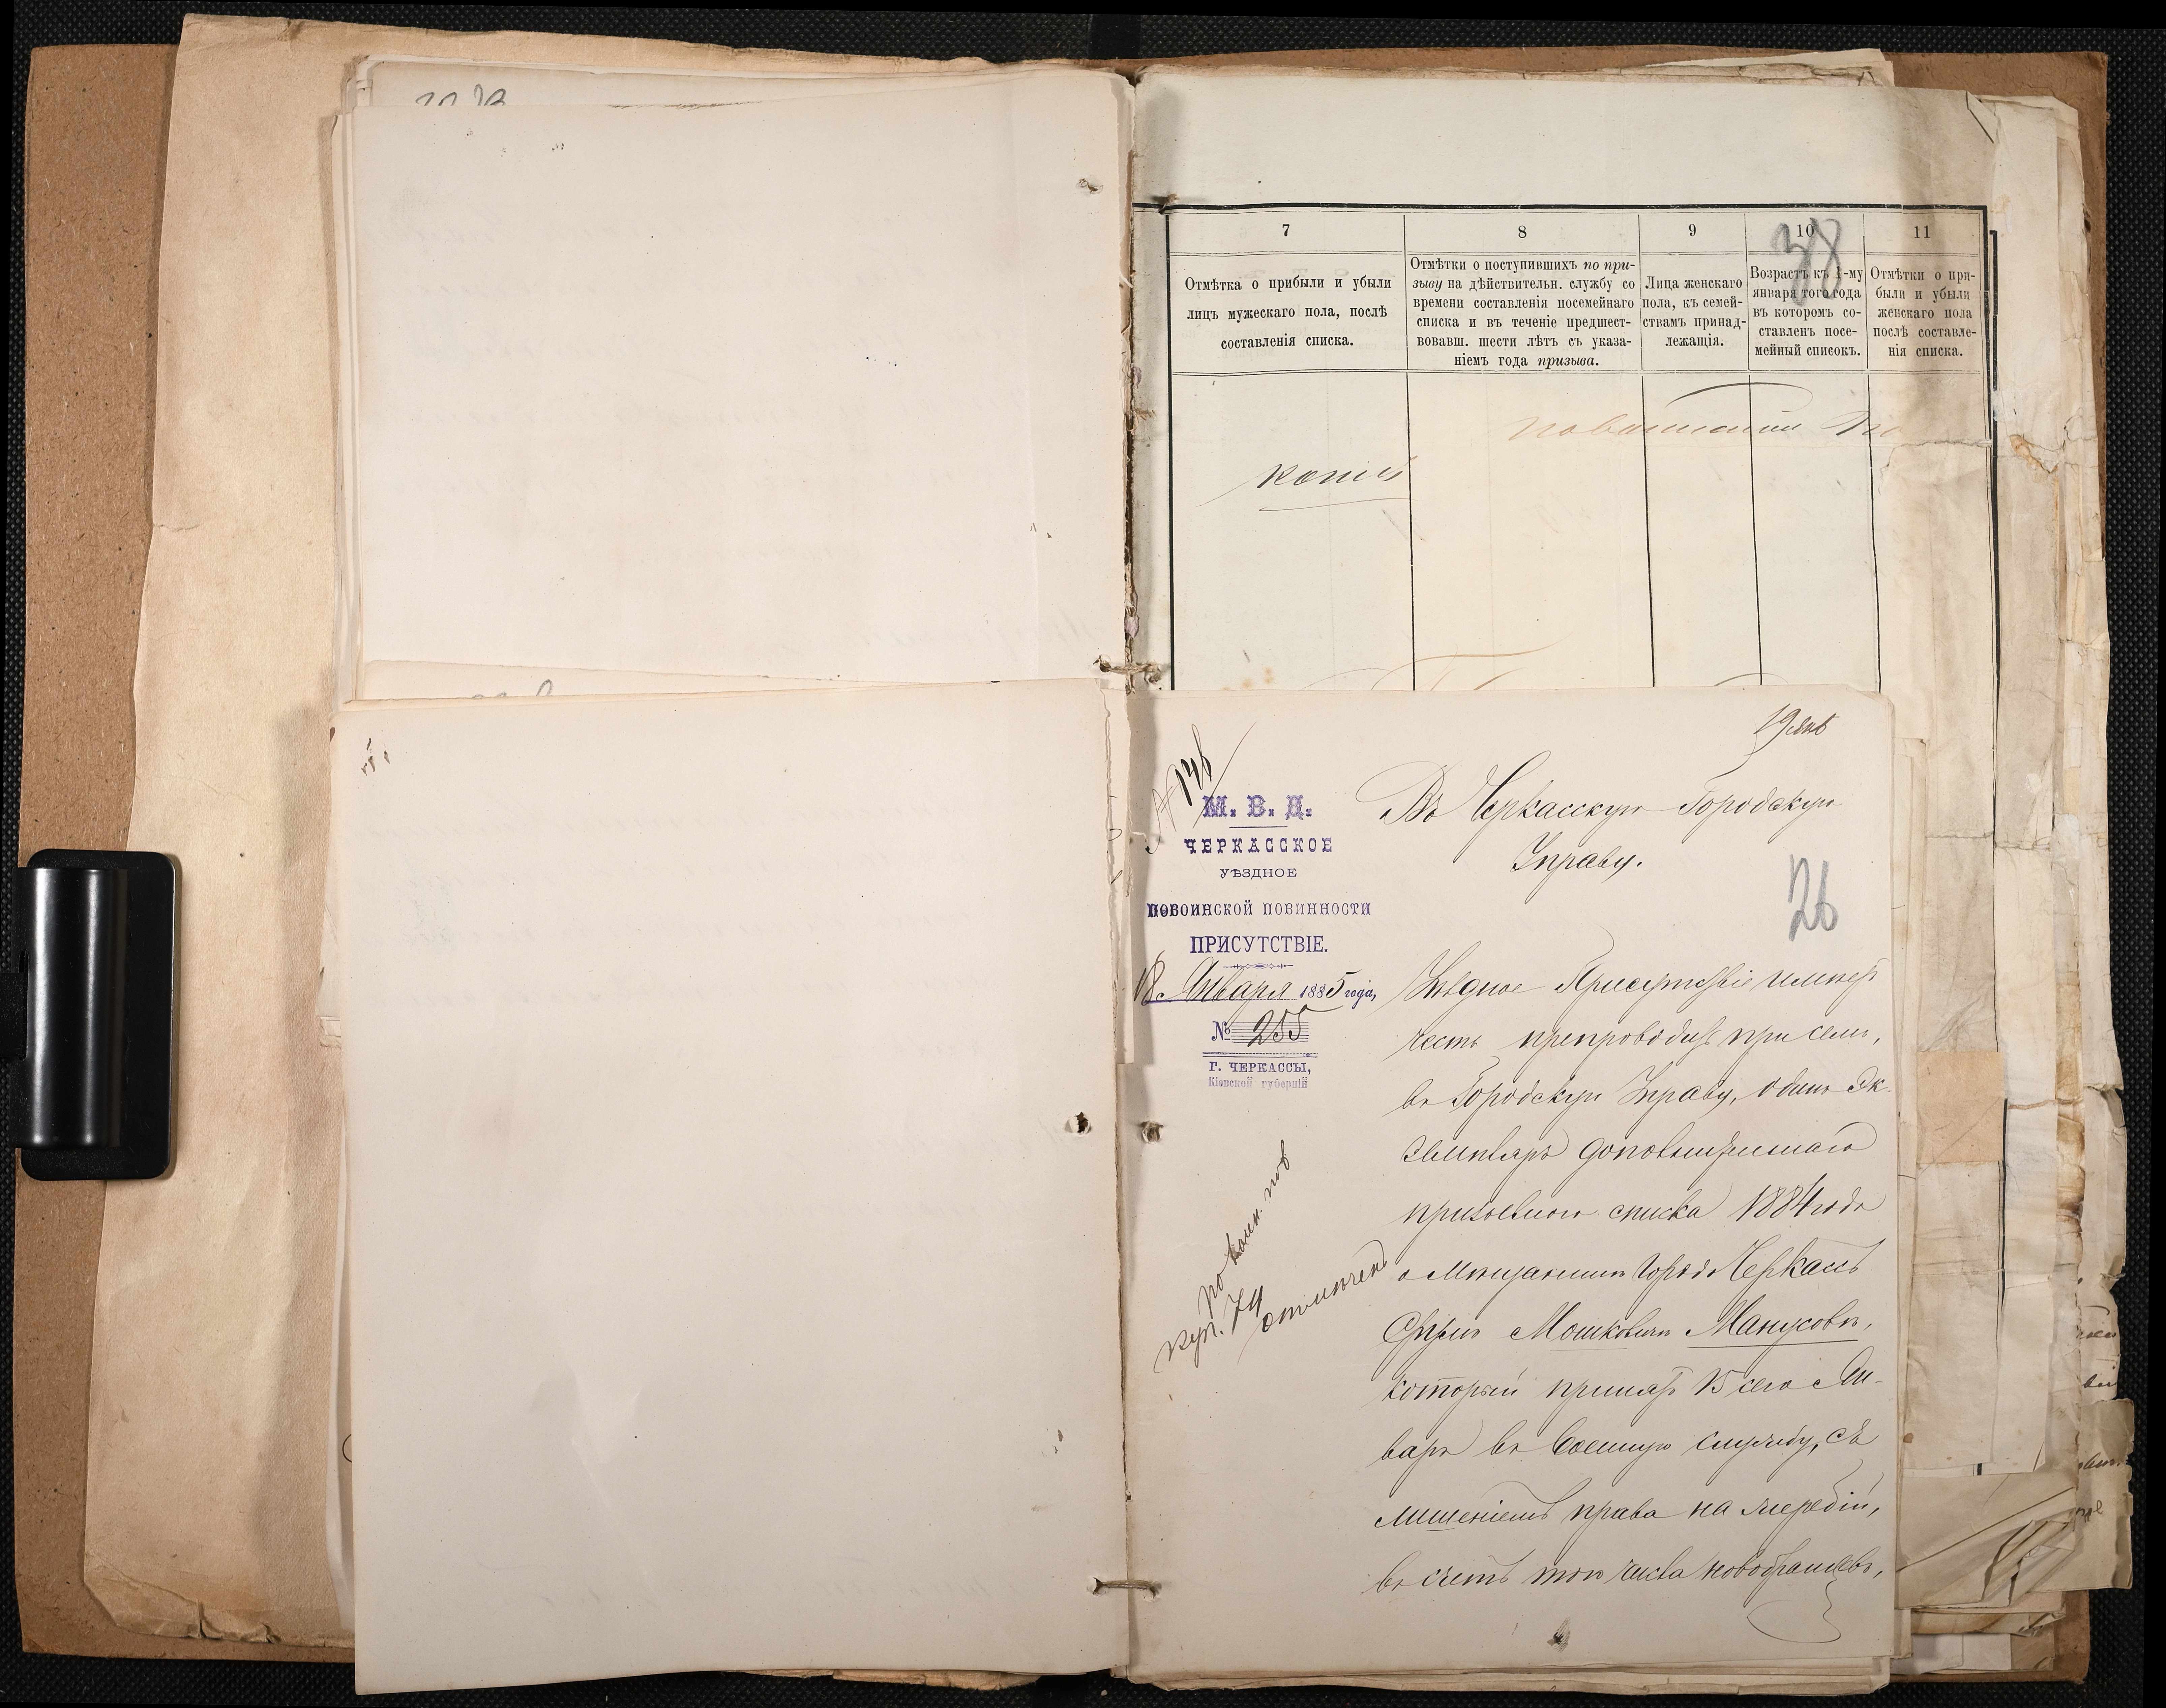 38
7
8
9
10
11
Отмѣтка о прибыли и убыли
лицъ мужескаго пола, послѣ
составленія списка.
Отмѣтки о поступившихъ по при-
зыву на дѣйствительн. службу со
времени составленія посемейнаго
списка и въ теченіе предшест-
вовавш. шести лѣтъ съ указа-
ніемъ года призыва.
Лица женскаго
пола, къ семей-
ствамъ принад-
лежащія.
Возрастъ къ 1-му
января того года
въ которомъ со-
ставленъ посе-
мейный списокъ.
Отмѣтки о при-
были и убыли
женскаго пола
послѣ составле-
нія списка.
19 янв
М. В. Д.
ЧЕРКАССКОЕ
УѢЗДНОЕ
ПО ВОИНСКОЙ ПОВИННОСТИ
ПРИСУТСТВІЕ.
18 Января 1885 года,
№ 255
Г. ЧЕРКАССЫ,
Кіевской губерніи
Въ Черкасскую Городскую
Управу.
26
Уѣздное Присутствіе имѣетъ
честь препроводить при семъ,
въ Городскую Управу, одинъ эк-
земпляръ дополнительнаго
призывного списка 1884 года
о мѣщанинѣ города Черкассъ
Мошковичъ Манусовъ,
который принятъ 15 сего Ян-
варя въ военную службу, съ
лишеніемъ права на жеребій,
въ счетъ того числа новобранцевъ,
по воин. пов
74
отмѣченъ